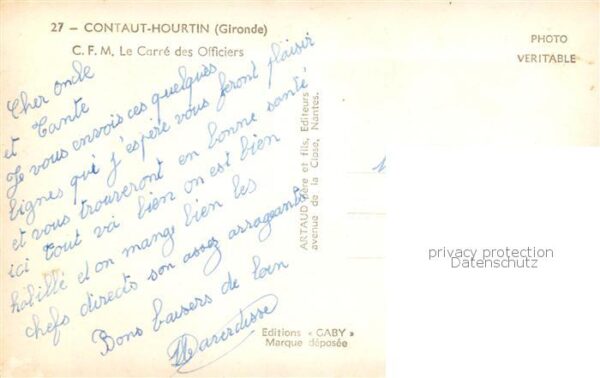 27 — CONTAUT-HOURTIN (Gironde)
C. F. M. Le Carré des Officiers
PHOTO
VERITABLE
Cher oncle
et Tante
Je vous envois ces quelques
lignes qui j'espère vous feront plaisir
et vous trouveront en bonne santé
ici tout va bien on est bien
habillé et on mange bien les
chefs directs son assez arrogeants
Bons baisers de loin
ARTAUD Père et fils, Editeurs
avenue de la Close, Nantes.
Editions « GABY »
Marque déposée
privacy protection
Datenschutz